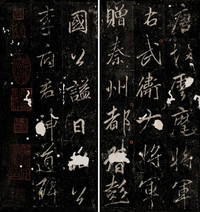 唐故雲麾將軍
右武衛大將軍
贈秦州都督彭
國公諡曰昭公
李府君神道碑